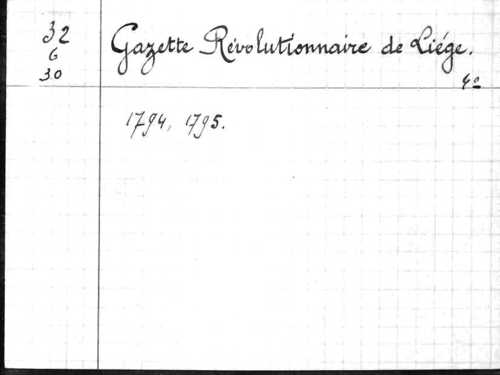 32
6
30
Gazette Révolutionnaire de Liége.
4º
1794, 1795.